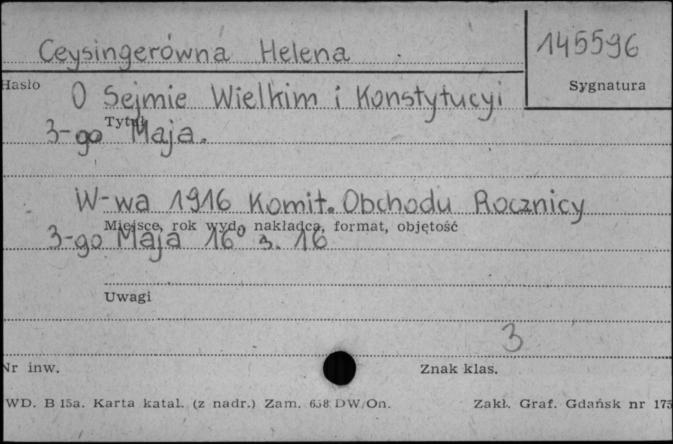 Ceysingerówna Helena
145596
Hasło
Sygnatura
O Sejmie Wielkim i Konstytucyi
Tytuł
3-go Maja.
W-wa 1916 Komit. Obchodu Rocznicy
Miejsce, rok wyd., nakładca, format, objętość
3-go Maja 16° s. 16
Uwagi
3
Nr inw.
Znak klas.
WD. B 15a. Karta katal. (z nadr.) Zam. 658 DW/On.
Zakł. Graf. Gdańsk nr 175